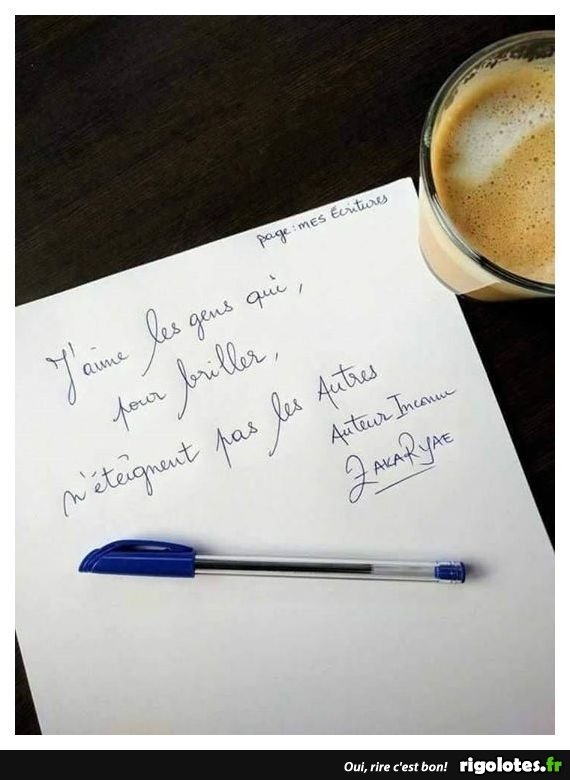 page: MES Écritures
J'aime les gens qui,
pour briller,
n'éteignent pas les Autres
Auteur Inconnu
ZAKARYAE
Oui, rire c'est bon! rigolotes.fr